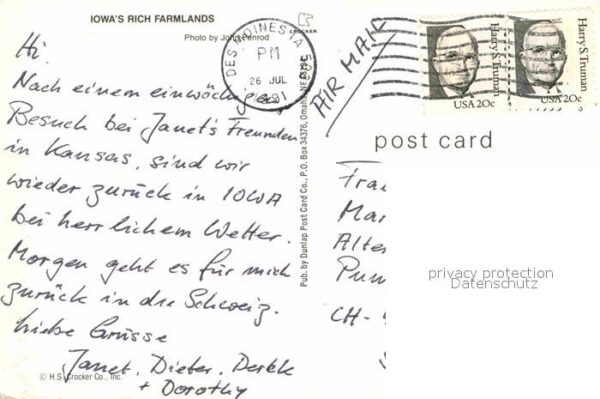 IOWA'S RICH FARMLANDS
Photo by John Penrod
Hi.
Nach einem einwöchigen
Besuch bei Janet's Freunden
in Kansas, sind wir
wieder zurück in IOWA
bei herrlichem Wetter.
Morgen geht es für mich
zurück in die Schweiz.
Liebe Grüsse
Janet, Dieter, Derek
+ Dorothy
© H.S. Crocker Co., Inc.
CROCKER
Pub. by Dunlap Post Card Co., P.O. Box 34376, Omaha, NE
DES MOINES IA
PM
26 JUL
1991
AIR MAIL
Harry S. Truman
USA 20c
Harry S. Truman
USA 20c
post card
Fra
Mar
Alte
Pun
CH-
privacy protection
Datenschutz